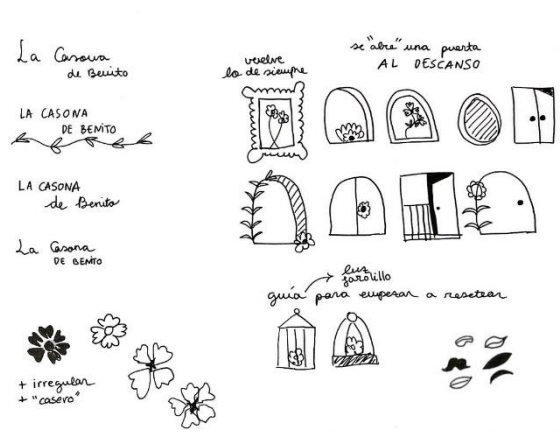 La Casona
de Benito
LA CASONA
DE BENITO
LA CASONA
de Benito
La Casona
DE BENITO
+ irregular
+ "casero"
vuelve
lo de siempre
se "abre" una puerta
AL DESCANSO
luz
farolillo
guía para empezar a resetear